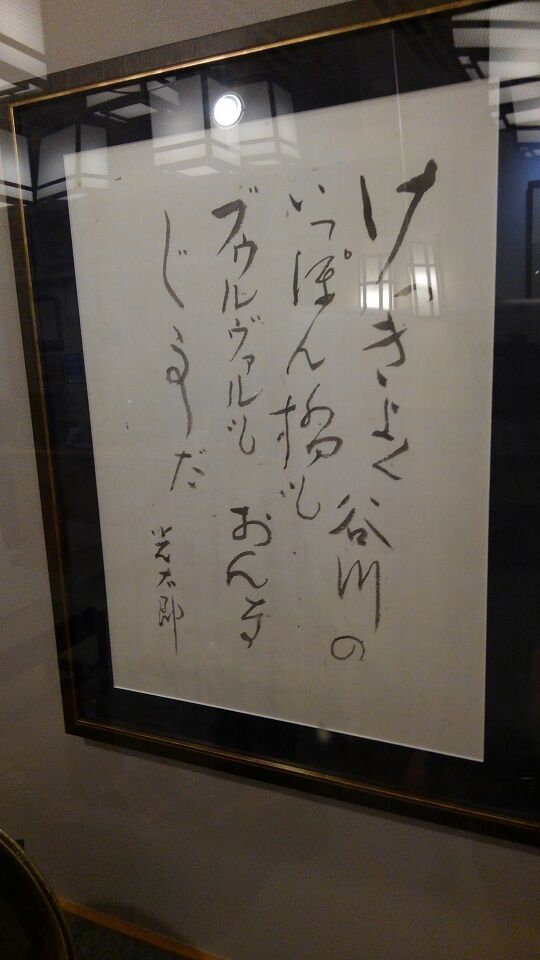 けつきよく谷川の
いつぽん橋も
ブウルヴァルも おんな
じ事だ
光太郎